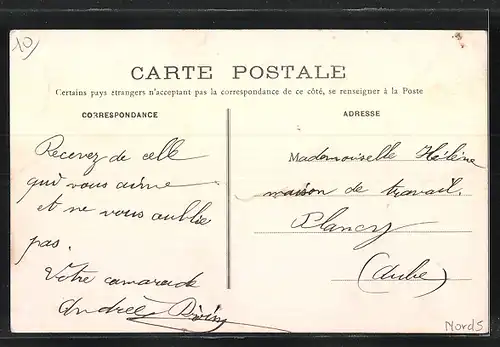 10)
CARTE POSTALE
Certains pays étrangers n'acceptant pas la correspondance de ce côté, se renseigner à la Poste
CORRESPONDANCE
Recevez de celle
qui vous aime
et ne vous oublie
pas.
Votre camarade
Andrée
ADRESSE
Mademoiselle Hélène
maison de travail.
Plancy
(Aube)
Nord S